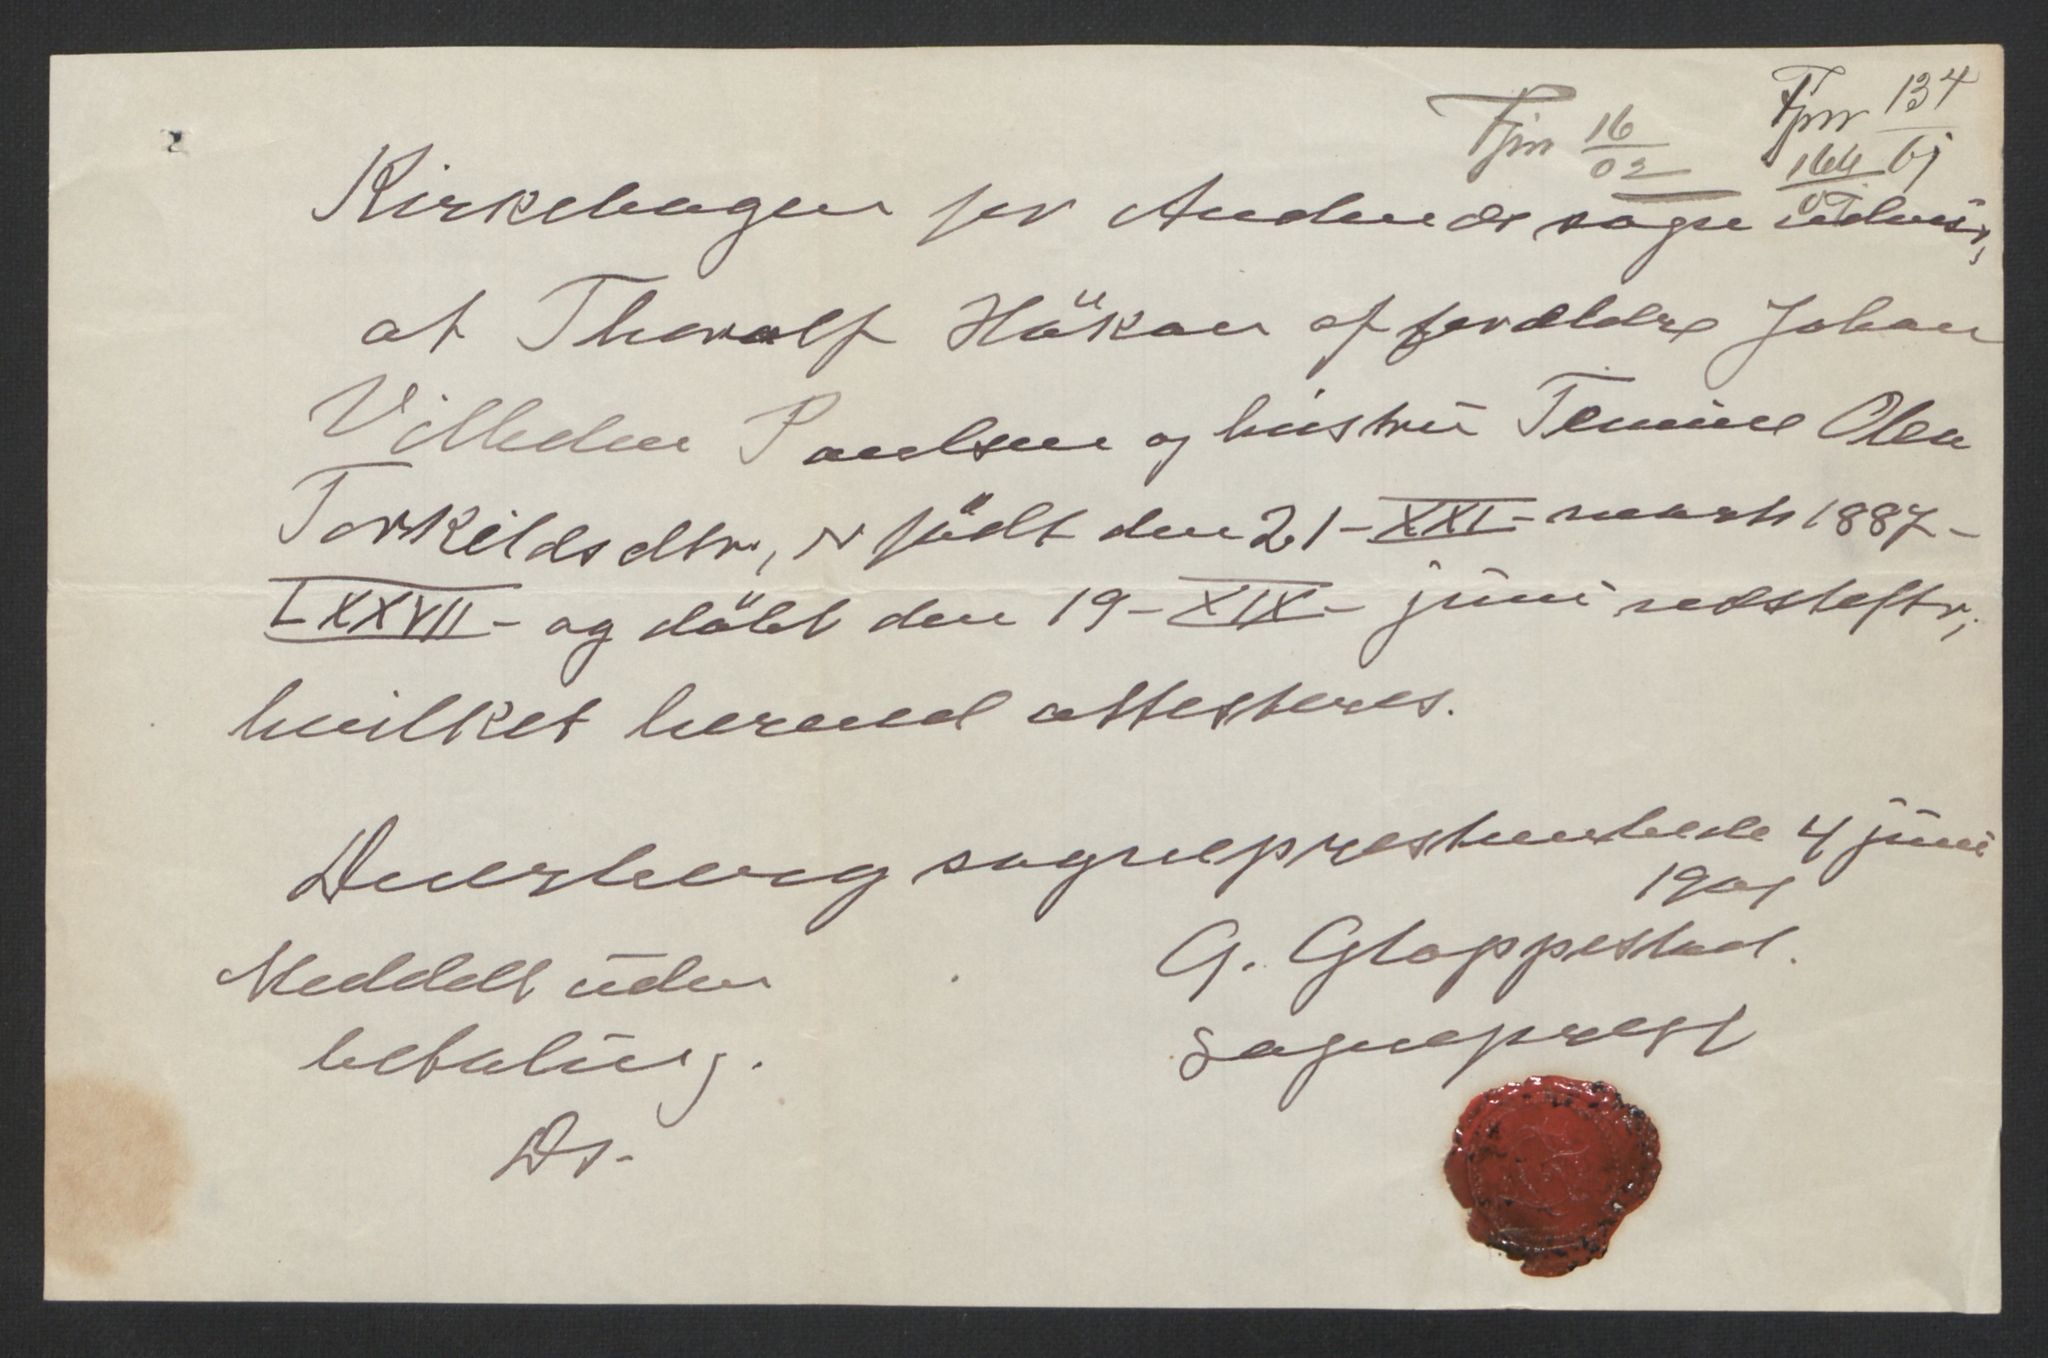 Fjnr 134/bj
Fjnr 16/02 166/01
Kirkebogen for Andenæs sogn udviser,
at Thoralf Håkon af forældre Johan
Vilhelm Paulsen og hustru Temine Olea
Torkildsdtr, er födt den 21 - XXI - marts 1887 -
LXXXVII - og döbt den 19 - XIX - juni næsteftr,
hvilket herved attesteres.
Dverberg sogneprestembede 4 juni
1901
G. Gloppestad.
sogneprest
Meddelt uden
betaling.
Ds-